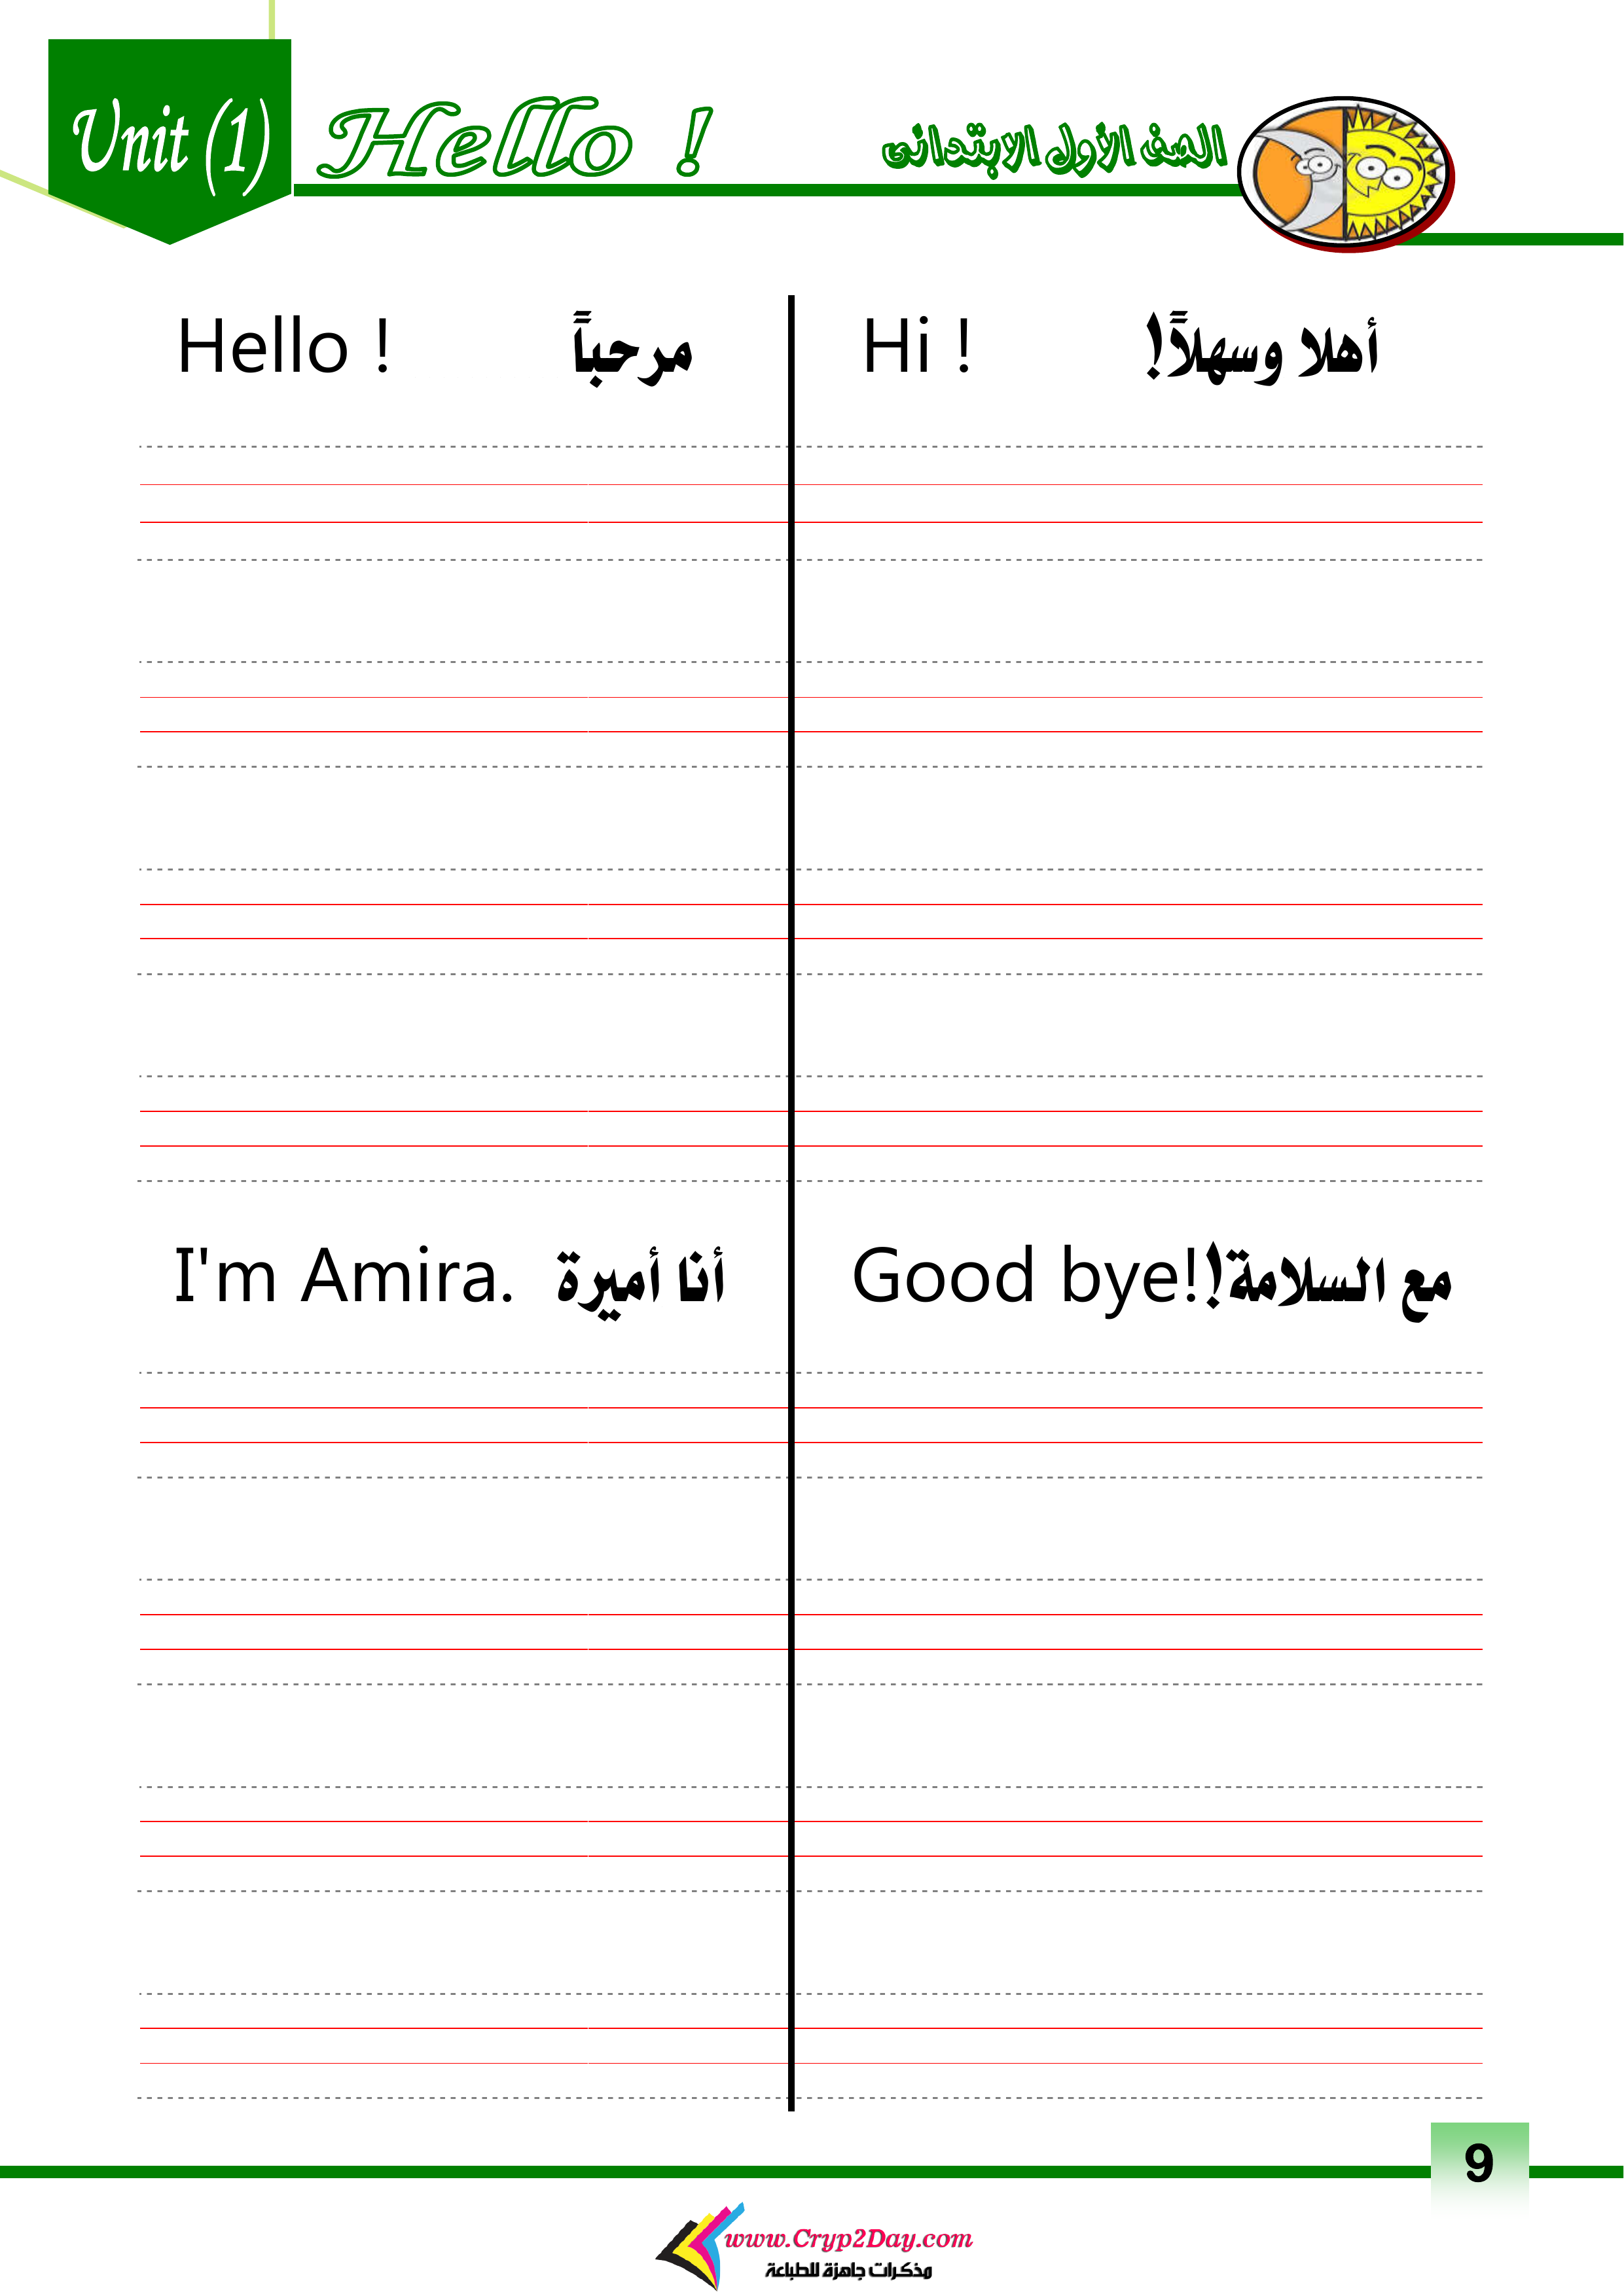 Unit (1)
Hello !
الصف الأول الابتدائى
Hello ! مرحباً
Hi ! أهلا وسهلاً!
I'm Amira. أنا أميرة
Good bye! مع السلامة!
9
www.Cryp2Day.com
مذكرات جاهزة للطباعة